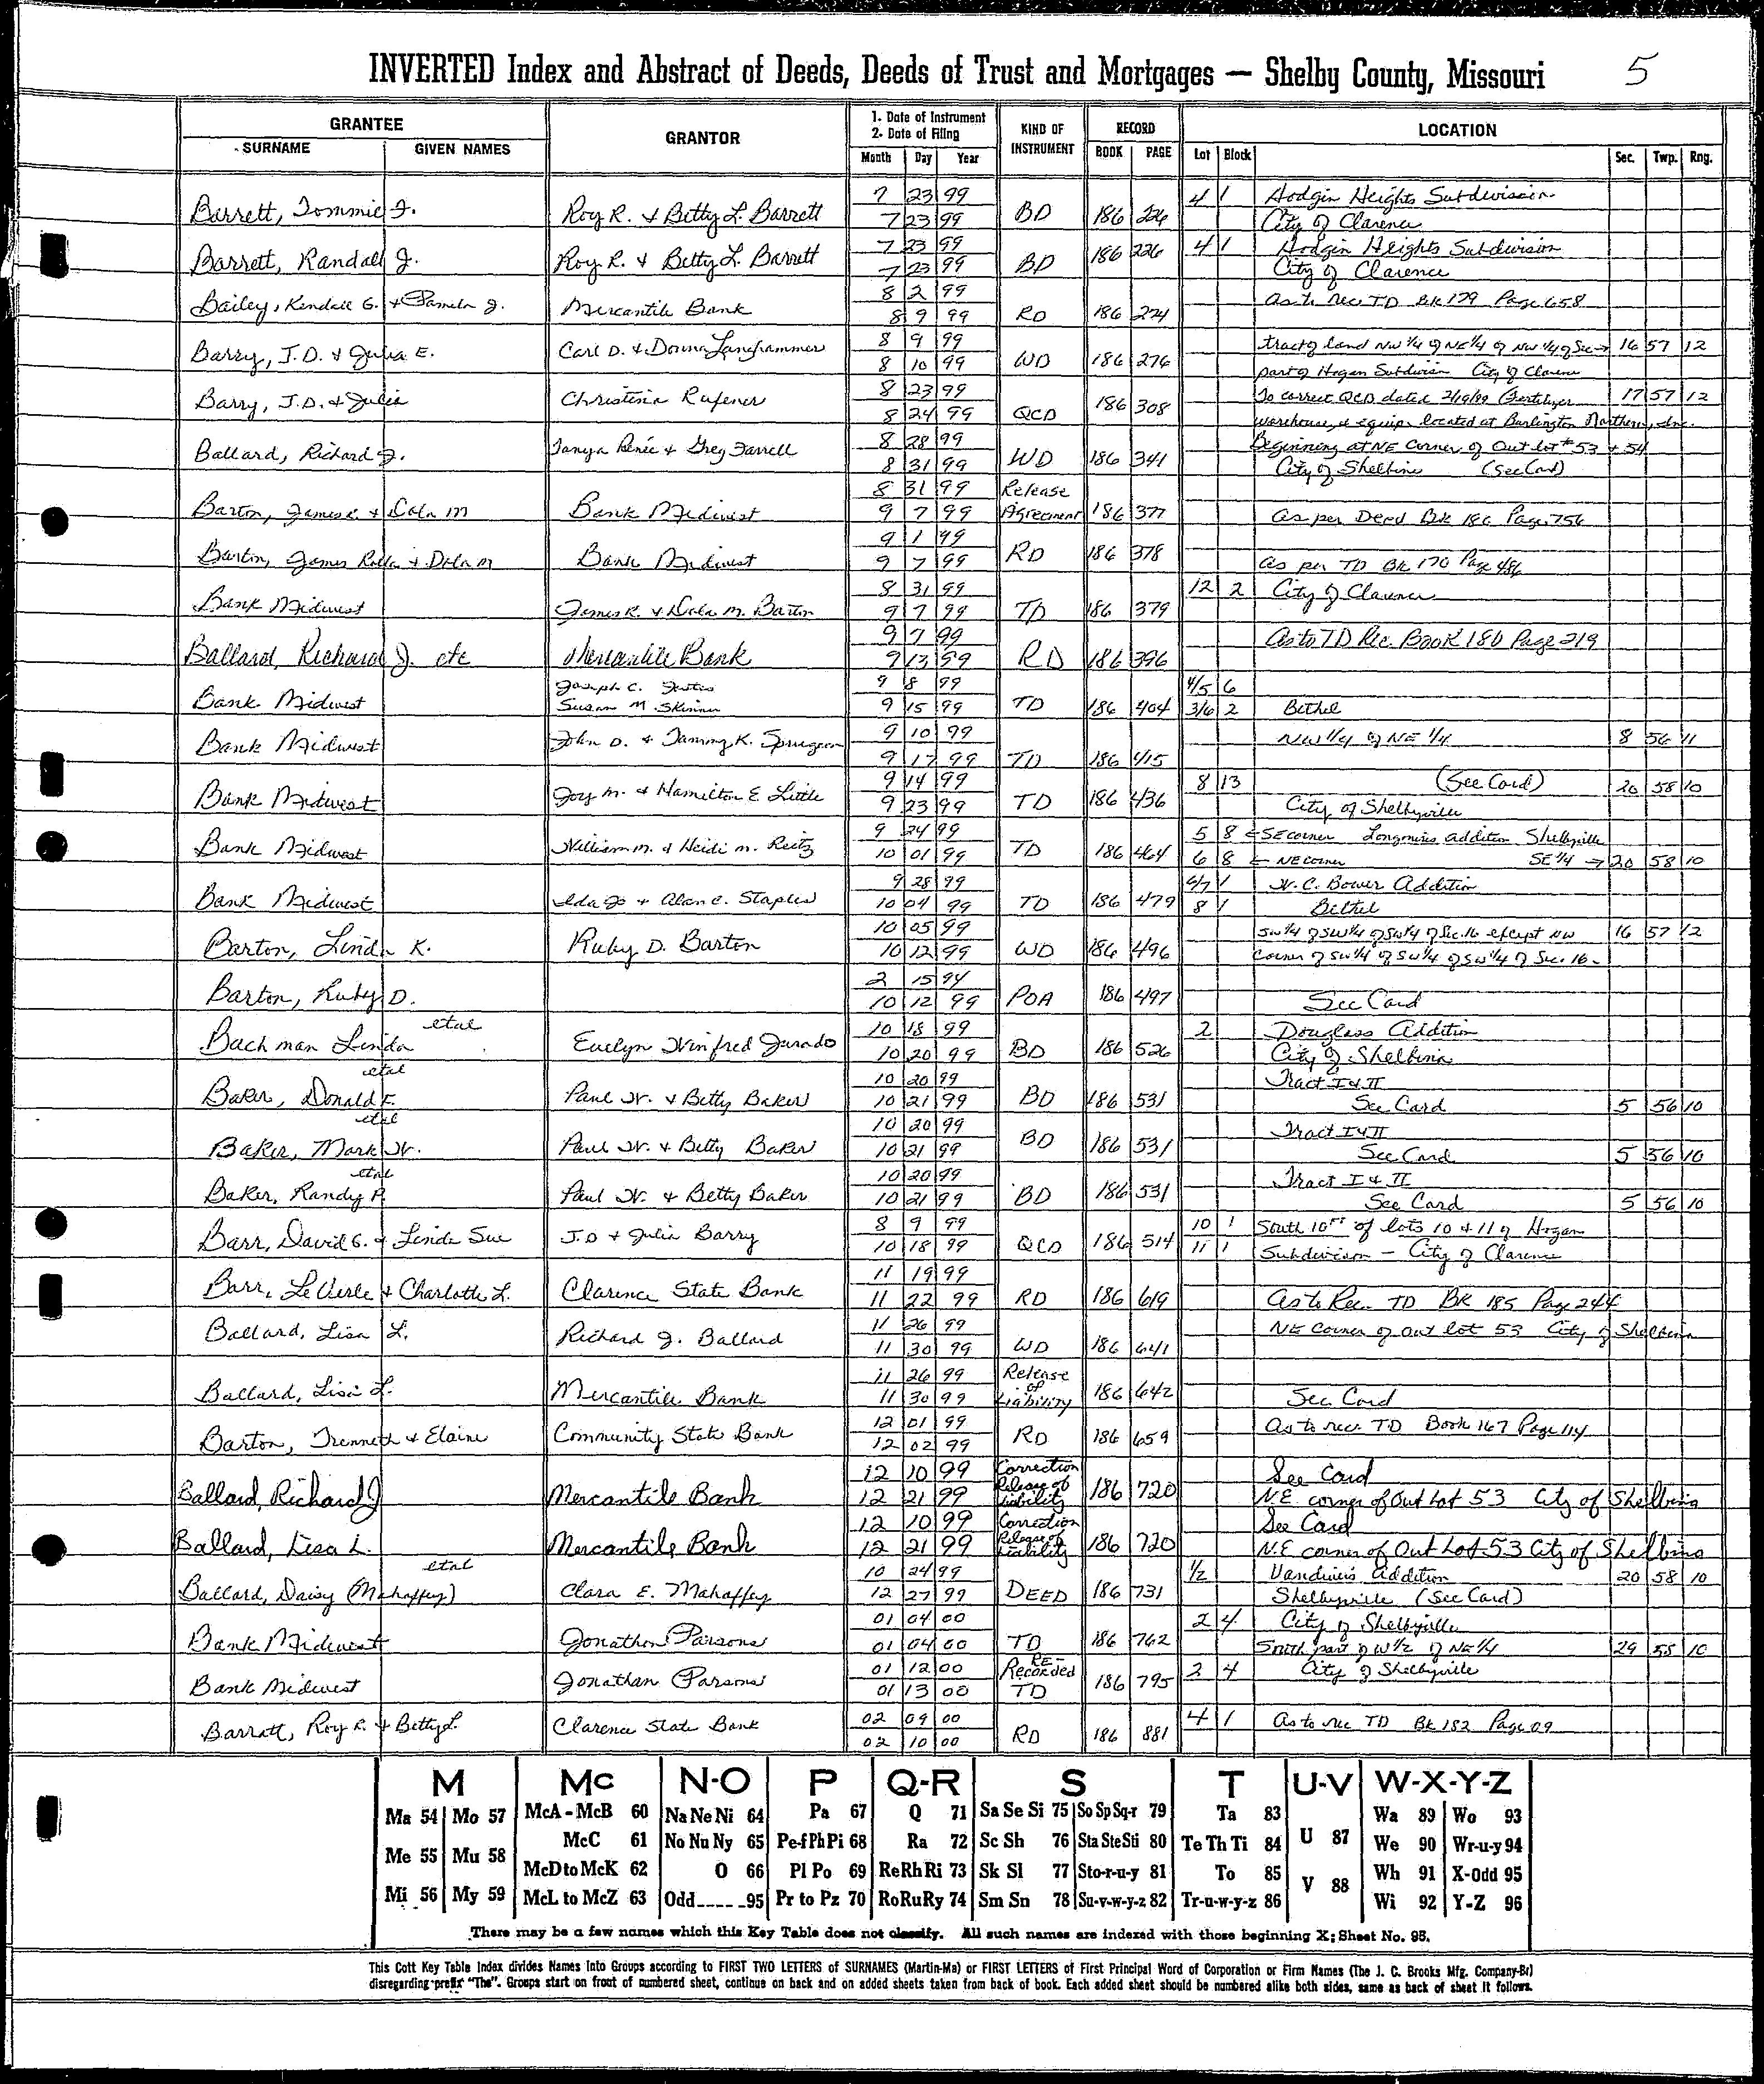 INVERTED Index and Abstract of Deeds, Deeds of Trust and Mortgages — Shelby County, Missouri 5
GRANTEE GRANTOR 1. Date of Instrument 2. Date of Filing KIND OF INSTRUMENT RECORD LOCATION
SURNAME GIVEN NAMES Month Day Year BOOK PAGE Lot Block Sec. Twp. Rng.
7 23 99 4 1 Hodgin Heights Subdivision
Barrett, Tommie J. Roy R. & Betty L. Barrett 7 23 99 BD 186 226 City of Clarence
7 23 99 4 1 Hodgin Heights Subdivision
Barrett, Randall J. Roy R. & Betty L. Barrett 7 23 99 BD 186 226 City of Clarence
8 2 99 As to rec TD Bk 179 Page 658
Bailey, Kendall G. & Pamela J. Mercantile Bank 8 9 99 RD 186 274
8 9 99 tract of land NW 1/4 of NE 1/4 of NW 1/4 of Sec → 16 57 12
Barry, J.D. & Julia E. Carl D. & Donna Langhammer 8 10 99 WD 186 276 part of Hogan Subdivisin City of Clarence
8 23 99 To correct QCD dated 2/19/99 (Fertilizer 17 57 12
Barry, J.D. & Julia Christina Rufener 8 24 99 QCD 186 308 warehouse & equip. located at Burlington Northern, Inc.
8 28 99 Beginning at NE Corner of Out lot # 53 & 54
Ballard, Richard J. Tanya Renée & Greg Farrell 8 31 99 WD 186 341 City of Shelbina (See Card)
8 31 99 Release
Barton, James R. & Dola M Bank Midwest 9 7 99 Agreement 186 377 As per Deed Bk 180 Page 756
9 1 99
Barton, James Rolla & Dola M Bank Midwest 9 7 99 RD 186 378 As per TD Bk 170 Page 486
8 31 99 12 2 City of Clarence
Bank Midwest James R. & Dola M. Barton 9 7 99 TD 186 379
9 7 99 As to TD Rec. Book 180 Page 219
Ballard, Richard J. etc Mercantile Bank 9 13 99 RD 186 396
Joseph C. 9 8 99 4/5 6
Bank Midwest Susan M. Skinner 9 15 99 TD 186 404 3/6 2 Bethel
9 10 99 NW 1/4 of NE 1/4 8 56 11
Bank Midwest John D. & Tammy K. Spurgeon 9 17 99 TD 186 415
9 14 99 8 13 (See Card) 20 58 10
Bank Midwest Joy M. & Hamilton E Little 9 23 99 TD 186 436 City of Shelbyville
9 24 99 5 8 ← SE corner Longmires addition Shelbyville
Bank Midwest William M. & Heidi M. Reitz 10 01 99 TD 186 464 6 8 ← NE corner SE 1/4 → 20 58 10
9 28 99 6/7 1 W. C. Bower Addition
Bank Midwest Ida Jo & Alan C. Staples 10 04 99 TD 186 479 8 1 Bethel
10 05 99 SW 1/4 of SW 1/4 of SW 1/4 of Sec. 16 except NW 16 57 12
Barton, Linda K. Ruby D. Barton 10 12 99 WD 186 496 Corner of SW 1/4 of SW 1/4 of SW 1/4 of Sec. 16-
2 15 94
Barton, Ruby D. 10 12 99 POA 186 497 See Card
etal 10 18 99 2 Douglass Addition
Bachman Linda Evelyn Winifred Jurado 10 20 99 BD 186 526 City of Shelbina
etal 10 20 99 Tract I & II
Baker, Donald E. Paul W. & Betty Baker 10 21 99 BD 186 531 See Card 5 56 10
etal 10 20 99 Tract I & II
Baker, Mark W. Paul W. & Betty Baker 10 21 99 BD 186 531 See Card 5 56 10
etal 10 20 99 Tract I & II
Baker, Randy P. Paul W. & Betty Baker 10 21 99 BD 186 531 See Card 5 56 10
8 9 99 10 1 South 10 FT of lots 10 & 11 of Hogan
Barr, David G. & Linda Sue J.D & Julia Barry 10 18 99 QCD 186 514 11 1 Subdivision - City of Clarence
11 19 99
Barr, LeVerle & Charlotte L. Clarence State Bank 11 22 99 RD 186 619 As to Rec. TD BK 185 Page 244
11 26 99 NE Corner of out lot 53 City of Shelbina
Ballard, Lisa L. Richard J. Ballard 11 30 99 WD 186 641
11 26 99 Release of
Ballard, Lisa L. Mercantile Bank 11 30 99 Liability 186 642 See Card
12 01 99 As to rec. TD Book 167 Page 114
Barton, Trenneth & Elaine Community State Bank 12 02 99 RD 186 659
12 10 99 Correction See Card
Ballard, Richard J Mercantile Bank 12 21 99 Release of Liability 186 720 N.E. corner of Out Lot 53 City of Shelbina
12 10 99 Correction See Card
Ballard, Lisa L. Mercantile Bank 12 21 99 Release of Liability 186 720 N.E corner of Out Lot 53 City of Shelbina
etal 10 24 99 1/2 Vandivers Addition 20 58 10
Ballard, Daisy (Mahaffey) Clara E. Mahaffey 12 27 99 DEED 186 731 Shelbyville (See Card)
01 04 00 2 4 City of Shelbyville
Bank Midwest Jonathon Parsons 01 04 00 TD 186 762 South part of W 1/2 of NE 1/4 29 58 10
01 12 00 RE-Recorded 2 4 City of Shelbyville
Bank Midwest Jonathan Parsons 01 13 00 TD 186 795
02 09 00 4 1 As to rec TD Bk 182 Page 09
Barratt, Roy R. & Betty L. Clarence State Bank 02 10 00 RD 186 881
M Mc N-O P Q-R S T U-V W-X-Y-Z
Ma 54 Mo 57 McA-McB 60 Na Ne Ni 64 Pa 67 Q 71 Sa Se Si 75 So Sp Sq-r 79 Ta 83 Wa 89 Wo 93
Me 55 Mu 58 McC 61 No Nu Ny 65 Pe-f Ph Pi 68 Ra 72 Sc Sh 76 Sta Ste Sti 80 Te Th Ti 84 U 87 We 90 Wr-u-y 94
McD to McK 62 O 66 Pl Po 69 Re Rh Ri 73 Sk Sl 77 Sto-r-u-y 81 To 85 V 88 Wh 91 X-Odd 95
Mi 56 My 59 McL to McZ 63 Odd_____95 Pr to Pz 70 Ro Ru Ry 74 Sm Sn 78 Su-v-w-y-z 82 Tr-u-w-y-z 86 Wi 92 Y-Z 96
There may be a few names which this Key Table does not classify. All such names are indexed with those beginning X; Sheet No. 95.
This Cott Key Table Index divides Names into Groups according to FIRST TWO LETTERS of SURNAMES (Martin-Ma) or FIRST LETTERS of First Principal Word of Corporation or Firm Names (The J. C. Brooks Mfg. Company-Br)
disregarding prefix "The". Groups start on front of numbered sheet, continue on back and on added sheets taken from back of book. Each added sheet should be numbered alike both sides, same as back of sheet it follows.